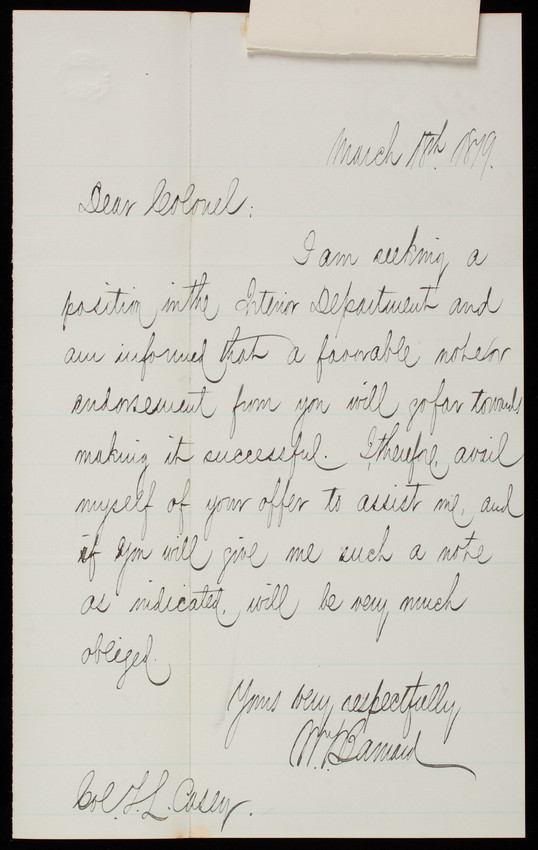 March 18th 1879.
Dear Colonel:
I am seeking a
position in the Interior Department and
am informed that a favorable note or
endorsement from you will go far towards
making it successful. I, therefore, avail
myself of your offer to assist me, and
if you will give me such a note
as indicated, will be very much
obliged.
Yours very respectfully
Wm Barnard
Col. T. L. Casey.